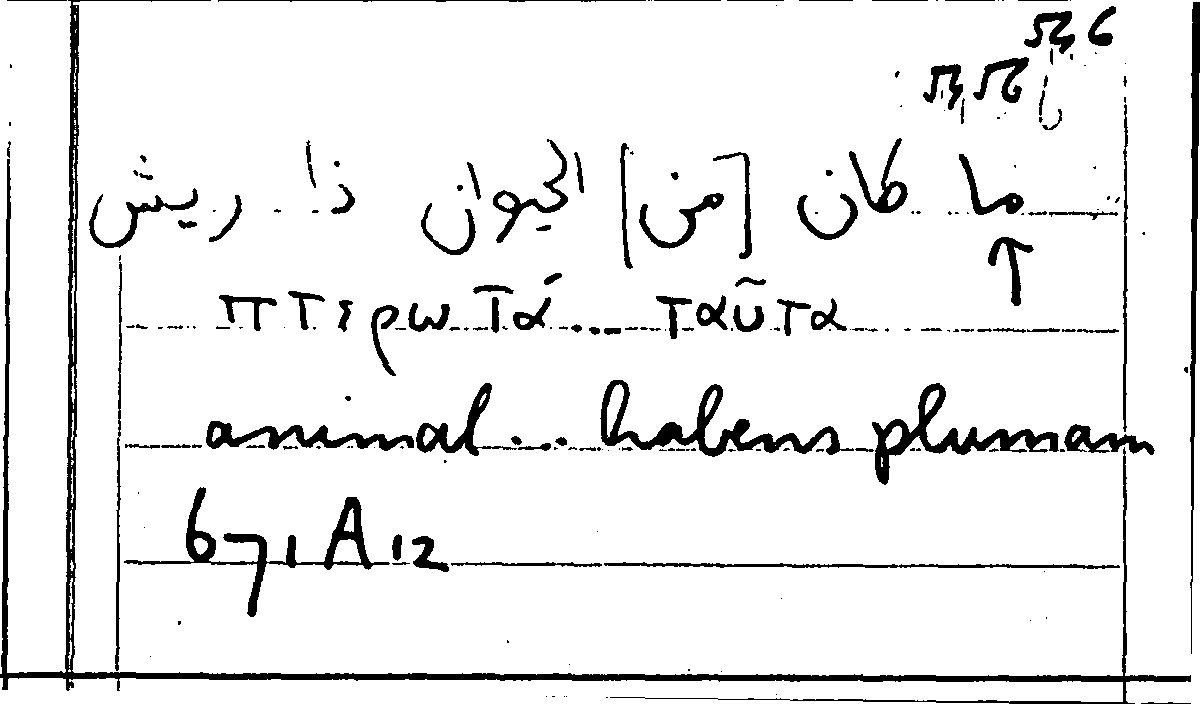 ما كان [من] الحيوان ذا ريش
πτερωτά... ταῦτα
animal... habens plumam
671 A 12